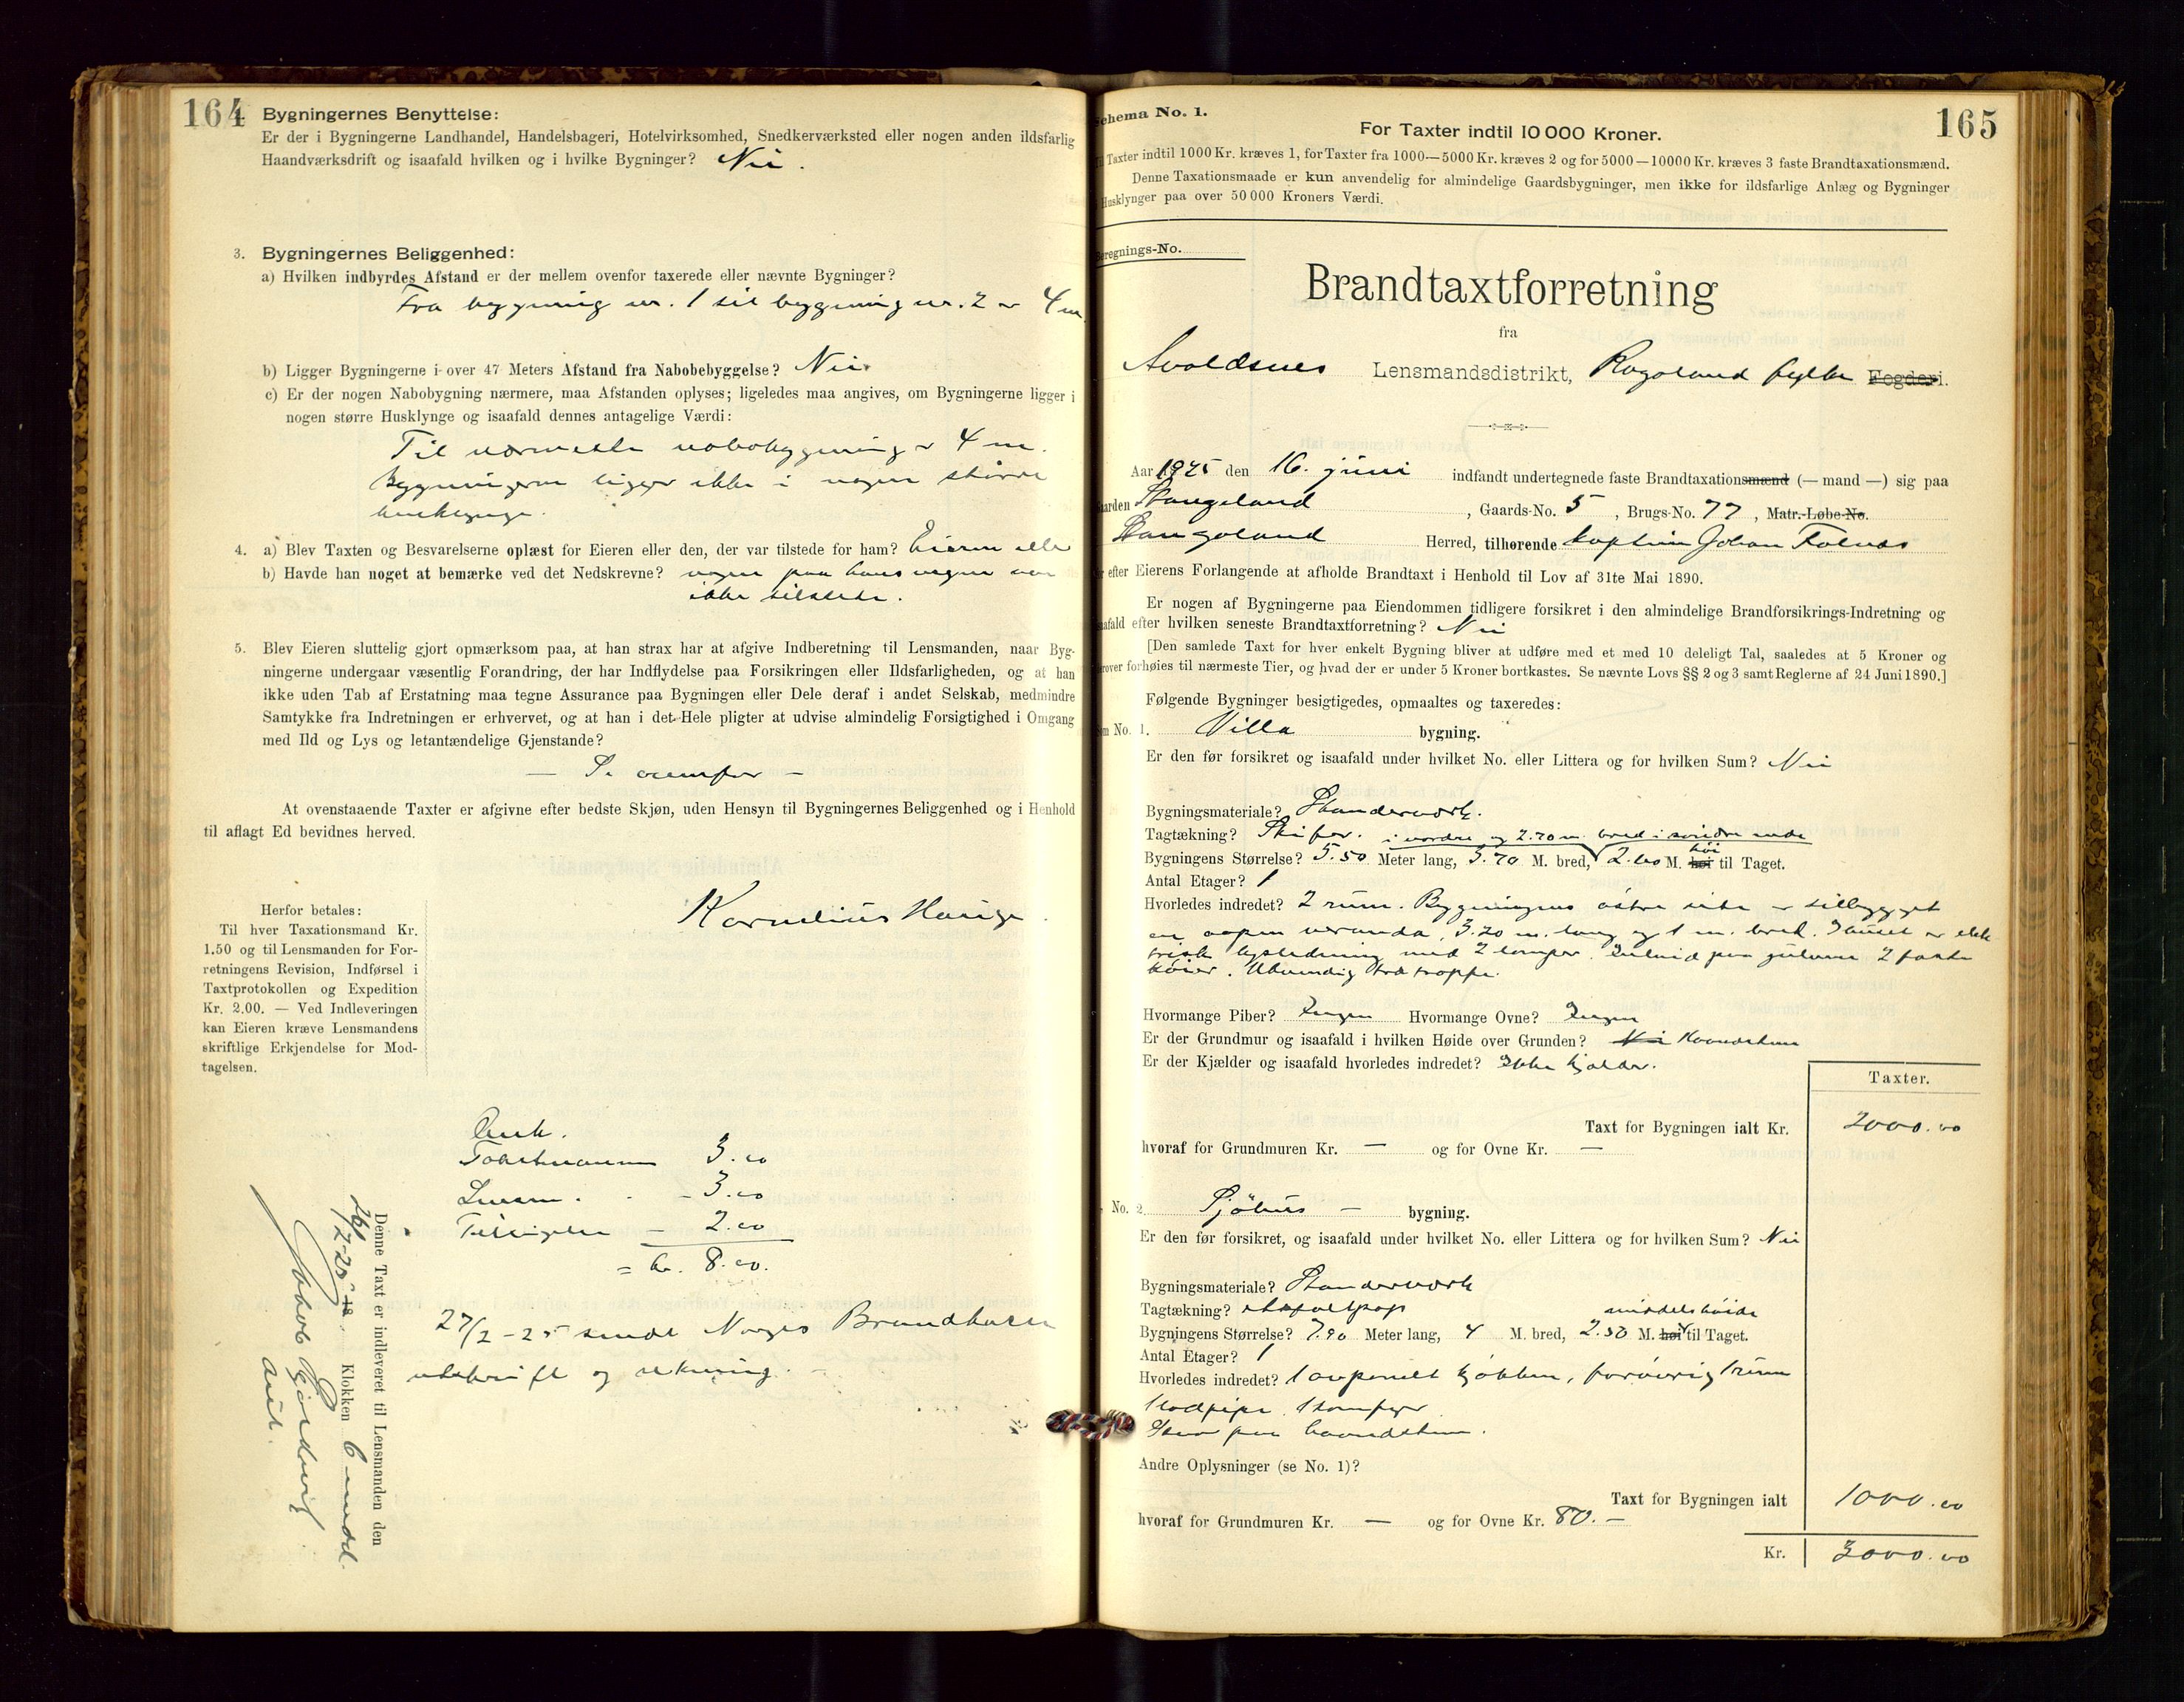 164
Bygningernes Benyttelse:
Er der i Bygningerne Landhandel, Handelsbageri, Hotelvirksomhed, Snedkerværksted eller nogen anden ildsfarlig
Haandværksdrift og isaafald hvilken og i hvilke Bygninger? Nei.
3. Bygningernes Beliggenhed:
a) Hvilken indbyrdes Afstand er der mellem ovenfor taxerede eller nævnte Bygninger?
Fra bygning nr. 1 til bygning nr. 2 er 4 m.
b) Ligger Bygningerne i over 47 Meters Afstand fra Nabobebyggelse? Nei.
c) Er der nogen Nabobygning nærmere, maa Afstanden oplyses; ligeledes maa angives, om Bygningerne ligger i
nogen større Husklynge og isaafald dennes antagelige Værdi:
Til nærmeste nabobygning er 4 m.
Bygningerne ligger ikke i nogen större
husklynge.
4. a) Blev Taxten og Besvarelserne oplæst for Eieren eller den, der var tilstede for ham? Eieren eller
b) Havde han noget at bemærke ved det Nedskrevne? nogen paa hans vegne var
ikke tilstede.
5. Blev Eieren sluttelig gjort opmærksom paa, at han strax har at afgive Indberetning til Lensmanden, naar Byg-
ningerne undergaar væsentlig Forandring, der har Indflydelse paa Forsikringen eller Ildsfarligheden, og at han
ikke uden Tab af Erstatning maa tegne Assurance paa Bygningen eller Dele deraf i andet Selskab, medmindre
Samtykke fra Indretningen er erhvervet, og at han i det Hele pligter at udvise almindelig Forsigtighed i Omgang
med Ild og Lys og letantændelige Gjenstande?
— Se ovenfor —
At ovenstaaende Taxter er afgivne efter bedste Skjøn, uden Hensyn til Bygningernes Beliggenhed og i Henhold
til aflagt Ed bevidnes herved.
Kornelius Hauge.
Herfor betales:
Til hver Taxationsmand Kr.
1.50 og til Lensmanden for For-
retningens Revision, Indførsel i
Taxtprotokollen og Expedition
Kr. 2.00. — Ved Indleveringen
kan Eieren kræve Lensmandens
skriftlige Erkjendelse for Mod-
tagelsen.
Takstmannen 3.00
Lensm. - 3.00
2.00
= kr. 8.00.
27/7-25 sendt Norges Brandkasse
utskrift og rekning.
Denne Taxt er indleveret til Lensmanden den
26/7-25 18 . Klokken 6 midd.
Jakob
165
Schema No. 1.
For Taxter indtil 10 000 Kroner.
Taxter indtil 1000 Kr. kræves 1, for Taxter fra 1000—5000 Kr. kræves 2 og for 5000—10000 Kr. kræves 3 faste Brandtaxationsmænd.
Denne Taxationsmaade er kun anvendelig for almindelige Gaardsbygninger, men ikke for ildsfarlige Anlæg og Bygninger
Husklynger paa over 50 000 Kroners Værdi.
Beregnings-No.
Brandtaxtforretning
fra
Avaldsnes Lensmandsdistrikt, Rogaland fylke Fogderi.
Aar 1925 den 16. juni indfandt undertegnede faste Brandtaxationsmænd (— mand —) sig paa
Gaarden Stangeland, Gaards-No. 5, Brugs-No. 77, Matr.-Løbe-No.
Stangaland Herred, tilhørende kaptein Johan Falnes
efter Eierens Forlangende at afholde Brandtaxt i Henhold til Lov af 31te Mai 1890.
Er nogen af Bygningerne paa Eiendommen tidligere forsikret i den almindelige Brandforsikrings-Indretning og
isaafald efter hvilken seneste Brandtaxtforretning? Nei
[Den samlede Taxt for hver enkelt Bygning bliver at udføre med et med 10 deleligt Tal, saaledes at 5 Kroner og
derover forhøies til nærmeste Tier, og hvad der er under 5 Kroner bortkastes. Se nævnte Lovs §§ 2 og 3 samt Reglerne af 24 Juni 1890.]
Følgende Bygninger besigtigedes, opmaaltes og taxeredes:
No. 1. Villa bygning.
Er den før forsikret og isaafald under hvilket No. eller Littera og for hvilken Sum? Nei
Bygningsmateriale? Standerverk.
Tagtækning? Skifer. i nordre og 2.70 m. bred i söndre ende
Bygningens Størrelse? 5.50 Meter lang, 3.70 M. bred, 2.60 M. høi til Taget.
Antal Etager? 1
Hvorledes indredet? 2 rum. Bygningens östre side er tilbygget
en aapen veranda, 3.20 m. lang og 1 m. bred. I huset er elek
trisk lysledning med 2 lamper. paa gulvene 2 faste
köier. Utvendig trætrappe.
Hvormange Piber? Ingen Hvormange Ovne? Ingen
Er der Grundmur og isaafald i hvilken Høide over Grunden? Nei
Er der Kjælder og isaafald hvorledes indredet? Ikke kjelder.
Taxter.
Taxt for Bygningen ialt Kr. 2000.00
hvoraf for Grundmuren Kr. — og for Ovne Kr. —
No. 2. Sjöhus — bygning.
Er den før forsikret, og isaafald under hvilket No. eller Littera og for hvilken Sum? Nei
Bygningsmateriale? Standerverk
Tagtækning? Asfaltpap middelshöide
Bygningens Størrelse? 7.90 Meter lang, 4 M. bred, 2.50 M. høi til Taget.
Antal Etager? 1
Hvorledes indredet? 1 kjökken, forövrig 1 rum
1 komfyr
Andre Oplysninger (se No. 1)?
Taxt for Bygningen ialt 1000.00
hvoraf for Grundmuren Kr. — og for Ovne Kr. 80.—
Kr. 3000.00